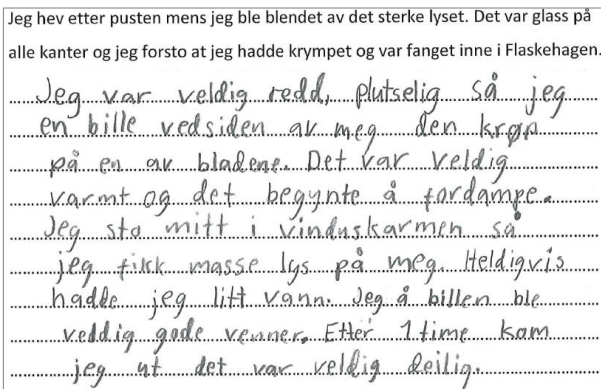 Jeg hev etter pusten mens jeg ble blendet av det sterke lyset. Det var glass på
alle kanter og jeg forsto at jeg hadde krympet og var fanget inne i Flaskehagen.
Jeg var veldig redd, plutselig så jeg
en bille vedsiden av meg den krøp
på en av bladene. Det var veldig
varmt og det begynte å fordampe.
Jeg sto mitt i vinduskarmen så
jeg fikk masse lys på meg. Heldigvis
hadde jeg litt vann. Jeg å billen ble
veldig gode venner. Etter 1 time kom
jeg ut det var veldig deilig.